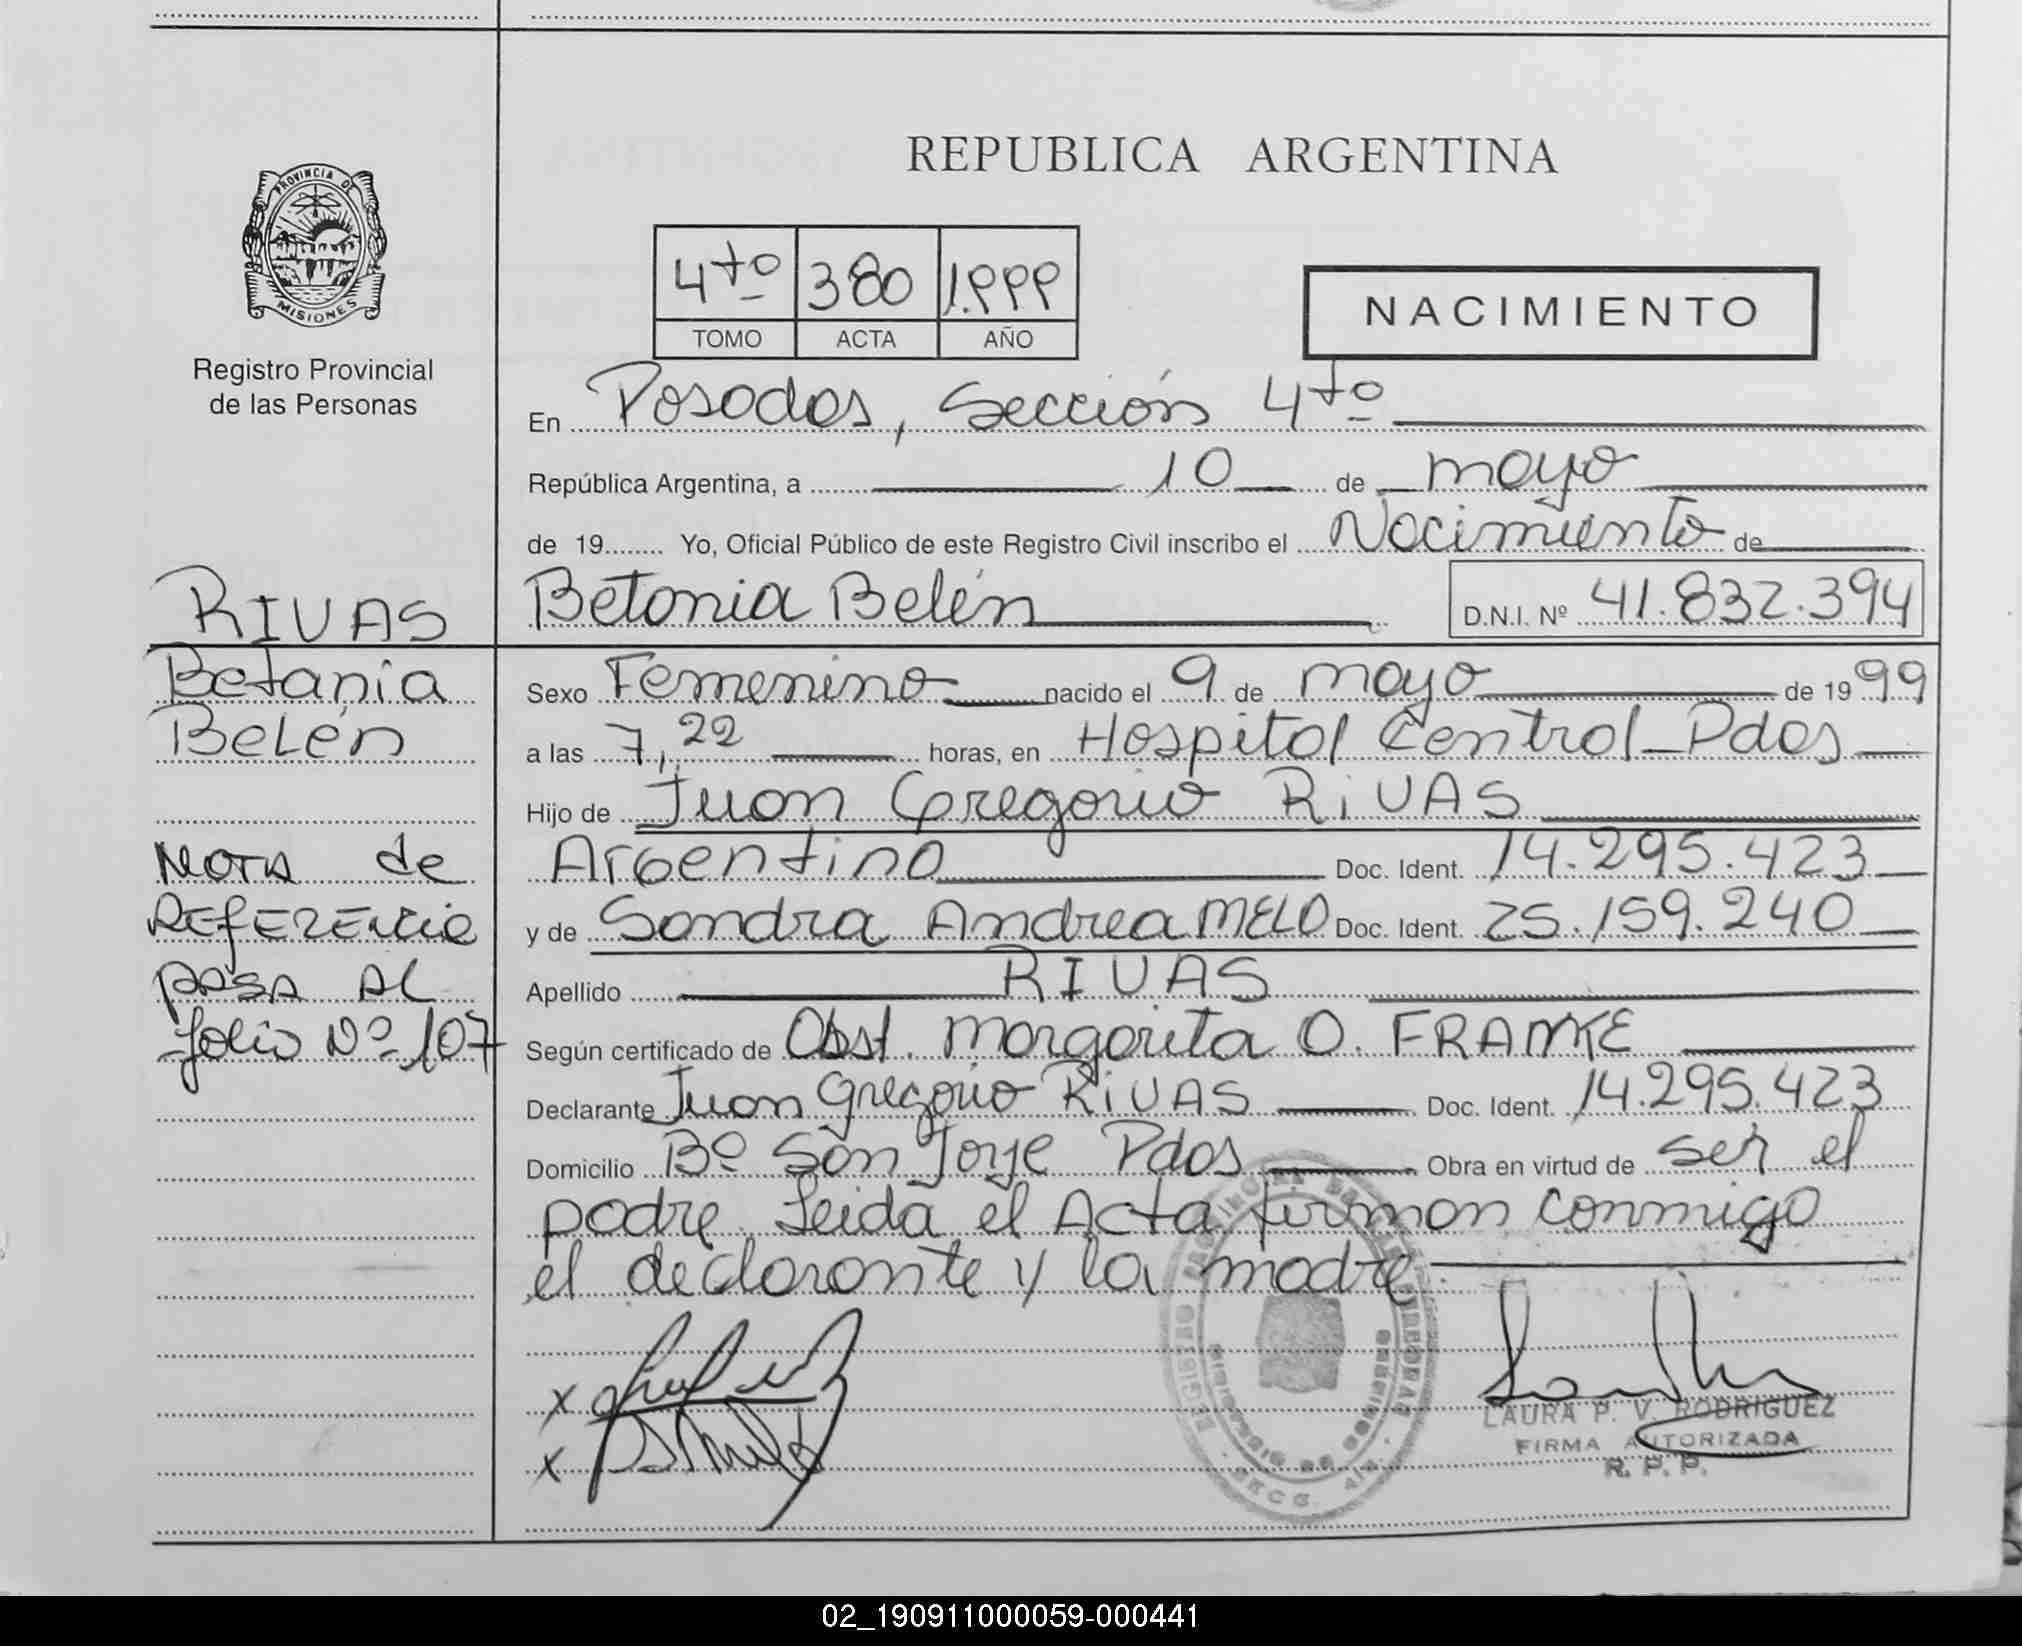 REPUBLICA ARGENTINA
PROVINCIA DE
MISIONES
Registro Provincial
de las Personas
4to 380 1.999
TOMO ACTA AÑO
NACIMIENTO
En Posadas, Sección 4to
República Argentina, a 10 de mayo
de 19........ Yo, Oficial Público de este Registro Civil inscribo el Nacimiento de
Betania Belén D.N.I. Nº 41.832.394
Sexo Femenino nacido el 9 de mayo de 1999
a las 7,22 horas, en Hospital Central Pdas
Hijo de Juan Gregorio RIVAS
Argentino Doc. Ident. 14.295.423
y de Sandra Andrea MELO Doc. Ident. 25.159.240
Apellido RIVAS
Según certificado de Obst. Margarita O. FRANKE
Declarante Juan Gregorio RIVAS Doc. Ident. 14.295.423
Domicilio Bº San Jorje Pdas Obra en virtud de ser el
padre. Leida el Acta firman conmigo
el declarante y la madre.
RIVAS
Betania
Belén
NOTA de
REFERENCIA
PASA AL
folio Nº 107
x
x
LAURA P. V. RODRIGUEZ
FIRMA AUTORIZADA
R. P. P.
02_190911000059-000441